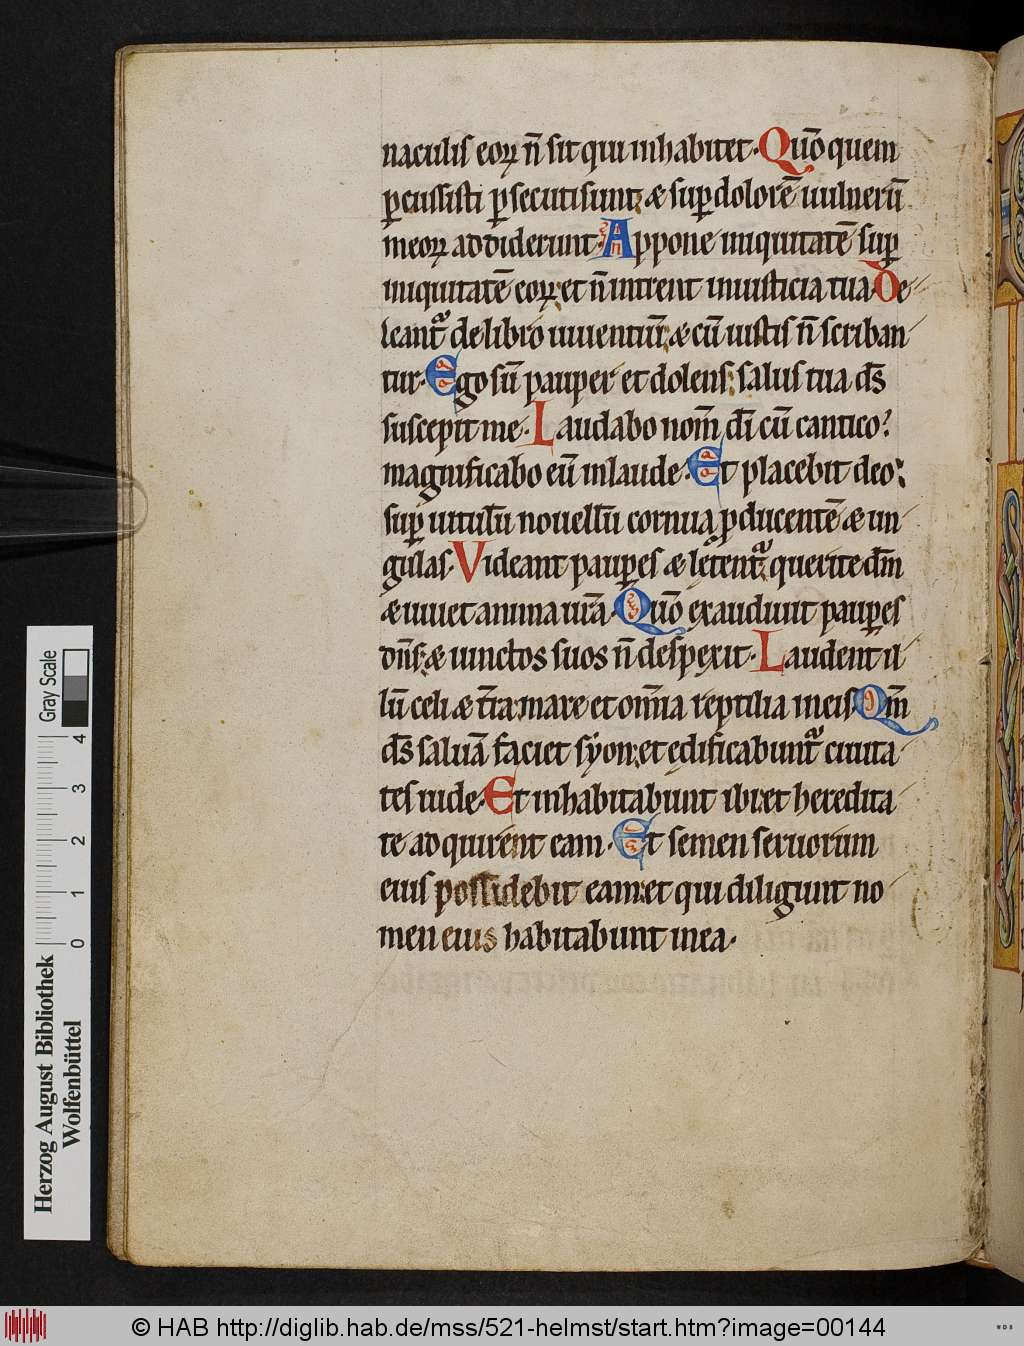 naculis eoꝝ n̄ sit qui inhabitet. Quō quem
ꝑcussisti ꝑsecuti sunt: & suꝑ dolorē uulnerū
meoꝝ addiderunt. Appone iniquitatē suꝑ
iniquitatē eoꝝ: et n̄ intrent in iusticia tua. De
leantᷓ de libro uiuentiū: & cū iustis n̄ scriban
tur. Ego sū pauper et dolens: salus tua ds̄
suscepit me. Laudabo nom̄ dī cū cantico:
magnificabo eū in laude. Et placebit deo:
suꝑ uitulū nouellū cornua ꝓducentē & un
gulas. Videant pauꝑes & lętentᷓ: querite dm̄
& uiuet anima ur̄a. Quō exaudiuit pauꝑes
dn̄s: & uinctos suos n̄ despexit. Laudent il
lū celi & tr̄a: mare et om̄ia reptilia in eis. Qm̄
ds̄ saluā faciet syon: et edificabuntᷓ ciuita
tes iude. Et inhabitabunt ibi: et heredita
te adquirent eam. Et semen seruorum
eius possidebit eam: et qui diligunt no
men eius habitabunt in ea.
Herzog August Bibliothek
Wolfenbüttel
0 1 2 3 4
Gray Scale
© HAB http://diglib.hab.de/mss/521-helmst/start.htm?image=00144